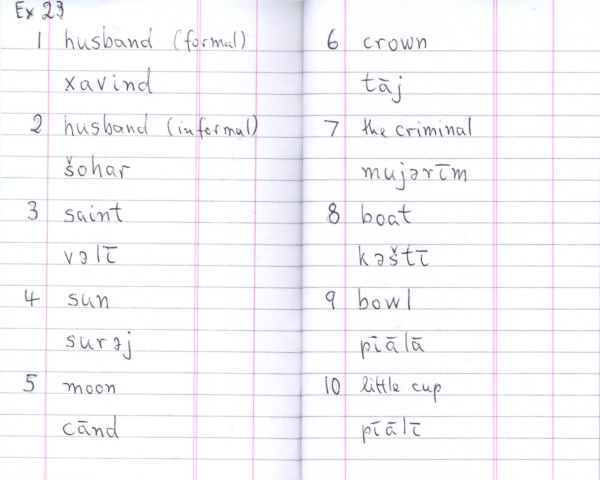 Ex 23
1 husband (formal)
xavind
2 husband (informal)
šohar
3 saint
vəlī
4 sun
surəj
5 moon
cānd
6 crown
tāj
7 the criminal
mujərīm
8 boat
kəštī
9 bowl
pīālā
10 little cup
pīālī